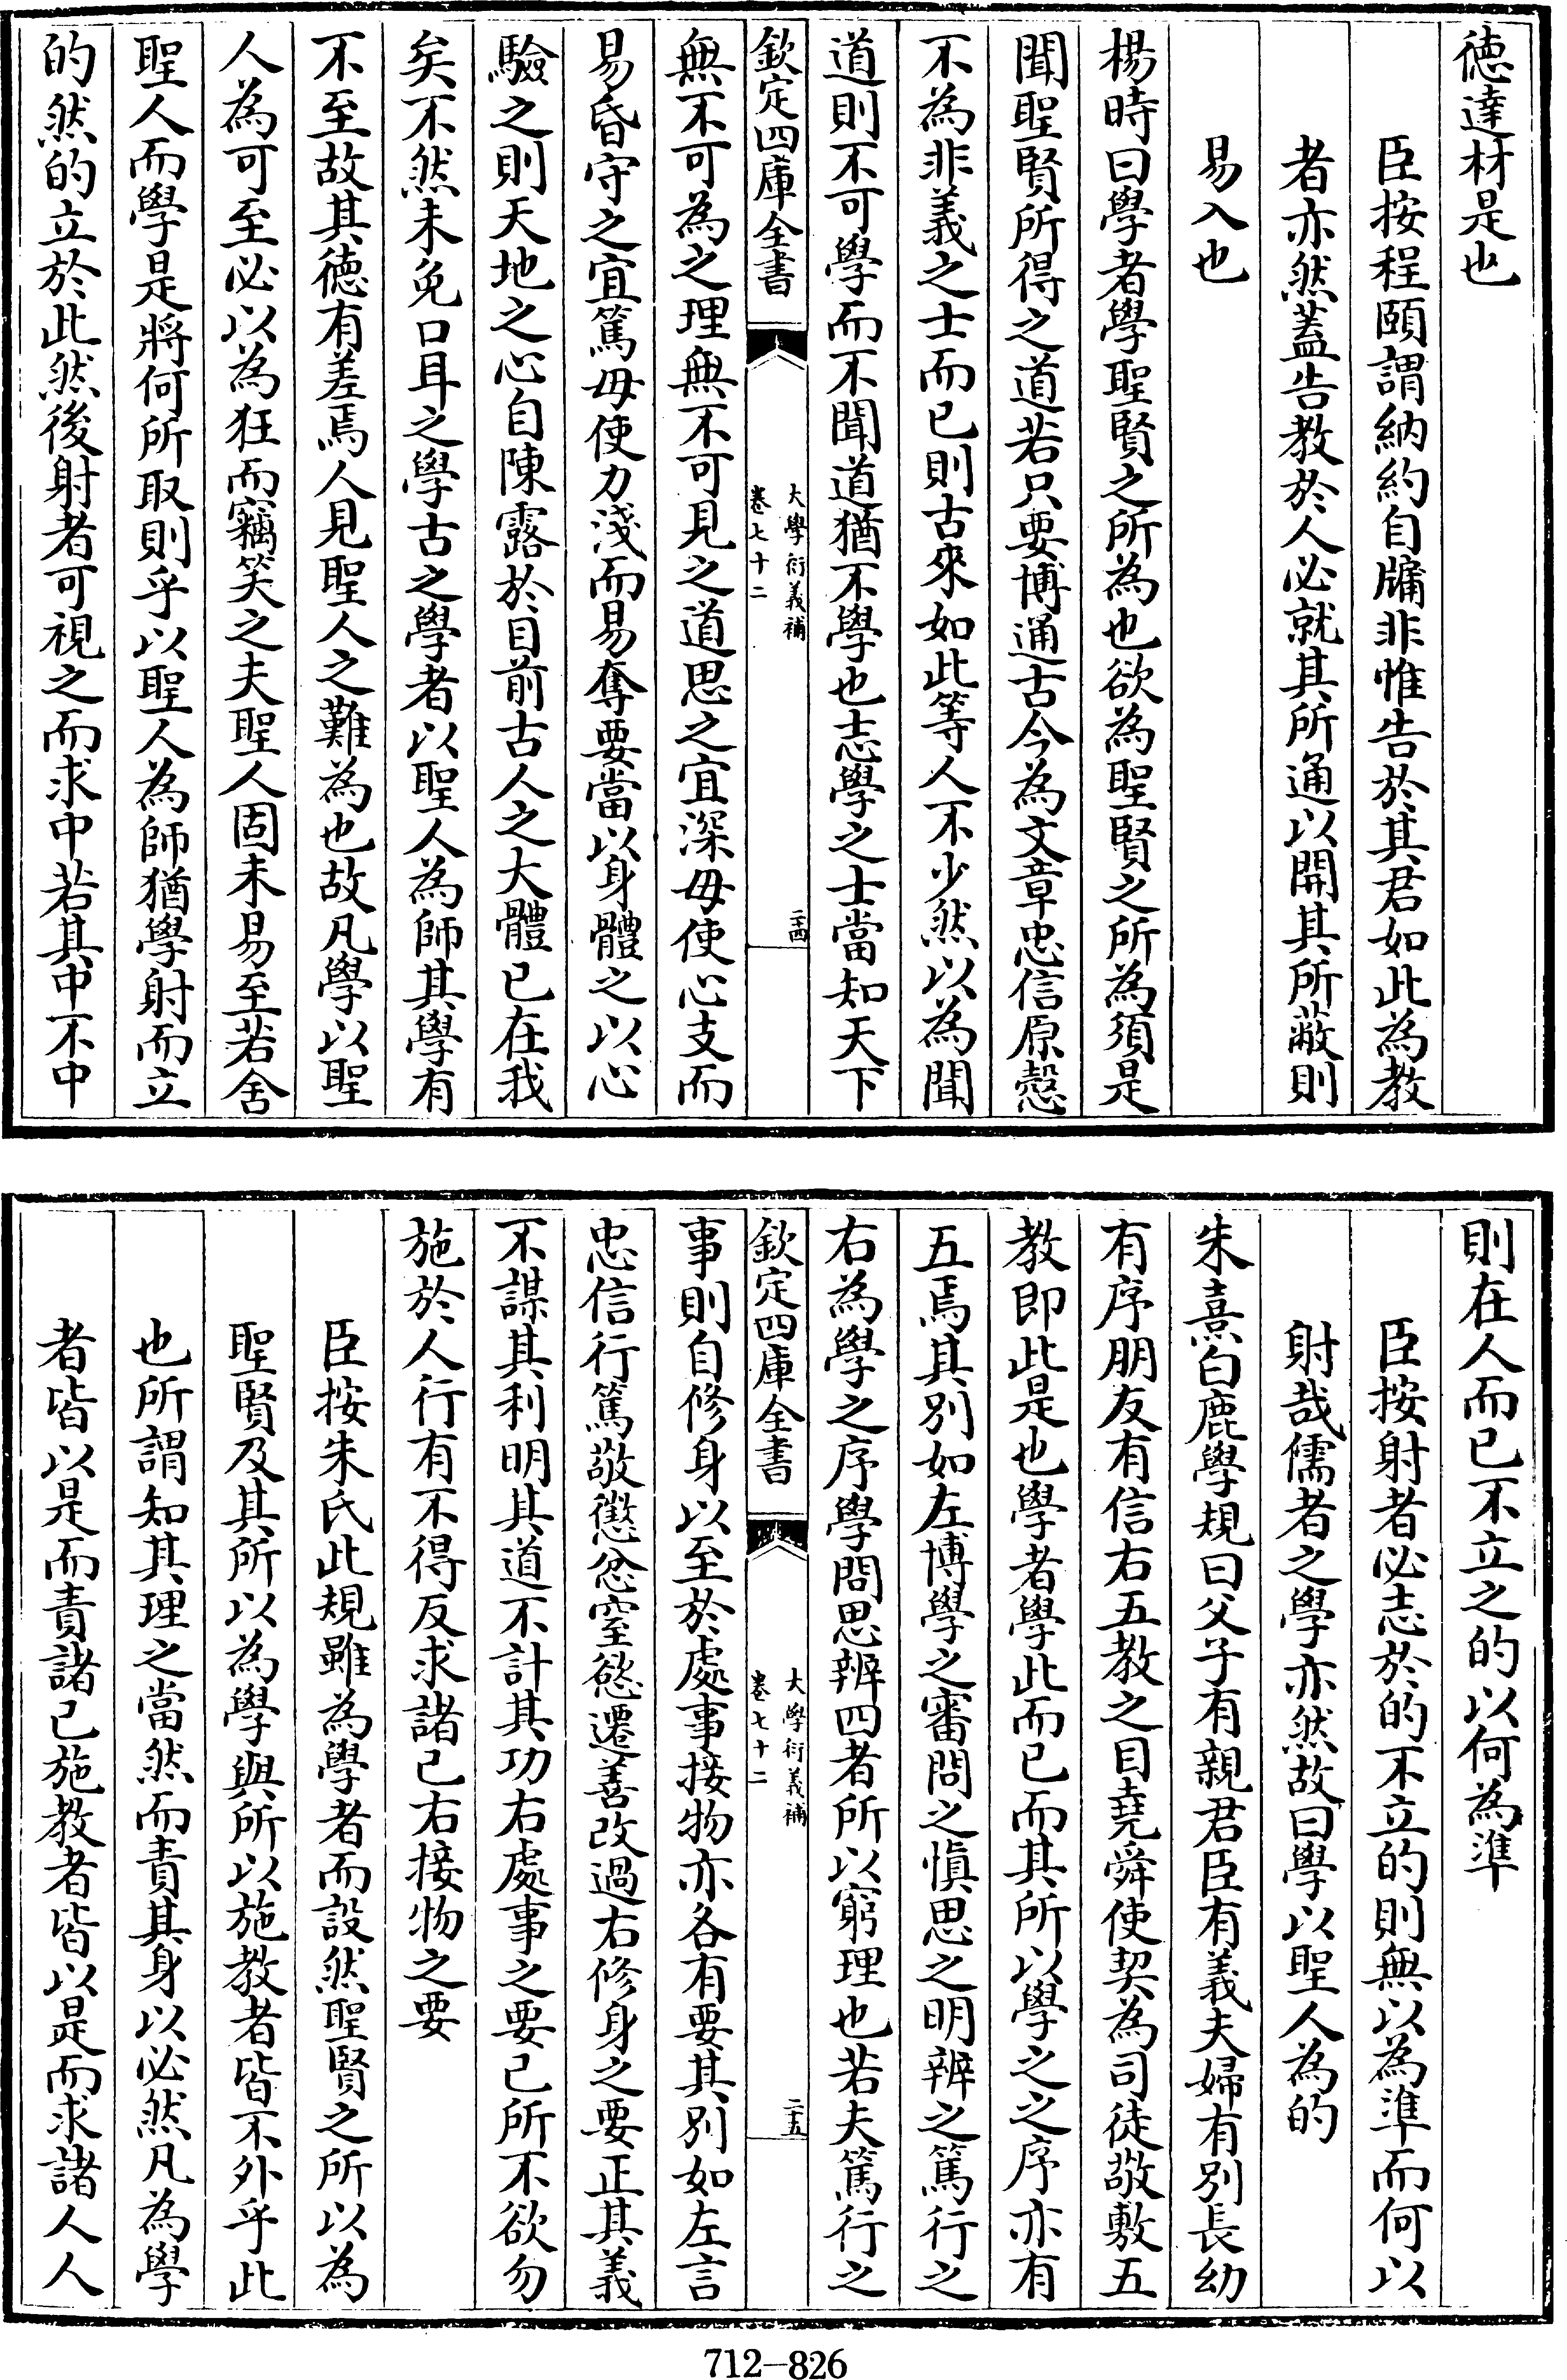 徳達材是也
臣按程頤謂納約自牖非惟告於其君如此為教
者亦然蓋告教於人必就其所通以開其所蔽則
易入也
楊時曰學者學聖賢之所為也欲為聖賢之所為須是
聞聖賢所得之道若只要博通古今為文章忠信原慤
不為非義之士而已則古來如此等人不少然以為聞
道則不可學而不聞道猶不學也志學之士當知天下
欽定四庫全書
大學衍義補
卷七十二
二十四
無不可為之理無不可見之道思之宜深毋使心支而
易昏守之宜篤毋使力淺而易奪要當以身體之以心
驗之則天地之心自陳露於目前古人之大體已在我
矣不然未免口耳之學古之學者以聖人為師其學有
不至故其徳有差焉人見聖人之難為也故凡學以聖
人為可至必以為狂而竊笑之夫聖人固未易至若舍
聖人而學是將何所取則乎以聖人為師猶學射而立
的然的立於此然後射者可視之而求中若其中不中
則在人而已不立之的以何為準
臣按射者必志於的不立的則無以為準而何以
射哉儒者之學亦然故曰學以聖人為的
朱熹白鹿學規曰父子有親君臣有義夫婦有別長幼
有序朋友有信右五教之目堯舜使契為司徒敬敷五
教即此是也學者學此而已而其所以學之之序亦有
五焉其別如左博學之審問之慎思之明辨之篤行之
右為學之序學問思辨四者所以窮理也若夫篤行之
欽定四庫全書
大學衍義補
卷七十二
二十五
事則自修身以至於處事接物亦各有要其別如左言
忠信行篤敬懲忿窒慾遷善改過右修身之要正其義
不謀其利明其道不計其功右處事之要已所不欲勿
施於人行有不得反求諸已右接物之要
臣按朱氏此規雖為學者而設然聖賢之所以為
聖賢及其所以為學與所以施教者皆不外乎此
也所謂知其理之當然而責其身以必然凡為學
者皆以是而責諸已施教者皆以是而求諸人人
712-826